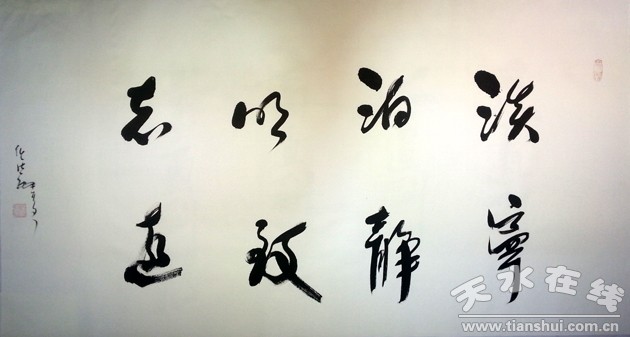 淡泊明志
寧静致遠
天水在线
www.tianshui.com.cn